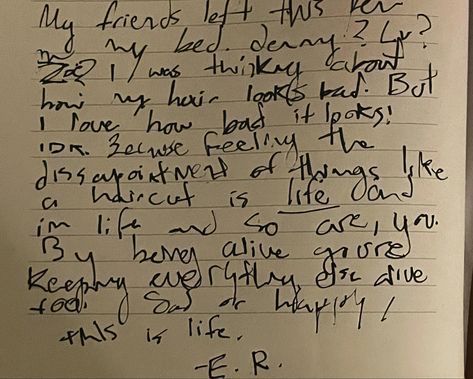 My friends left this pen
my bed. denny? Lu?
Zoe? I was thinking about
how my hair looks bad. But
I love how bad it looks!
IDK. Because feeling the
dissapointment of things like
a haircut is life and
im life and so are, you.
By being alive youre
keeping everything else alive
too. Sad or happy,
this is life.
-E. R.